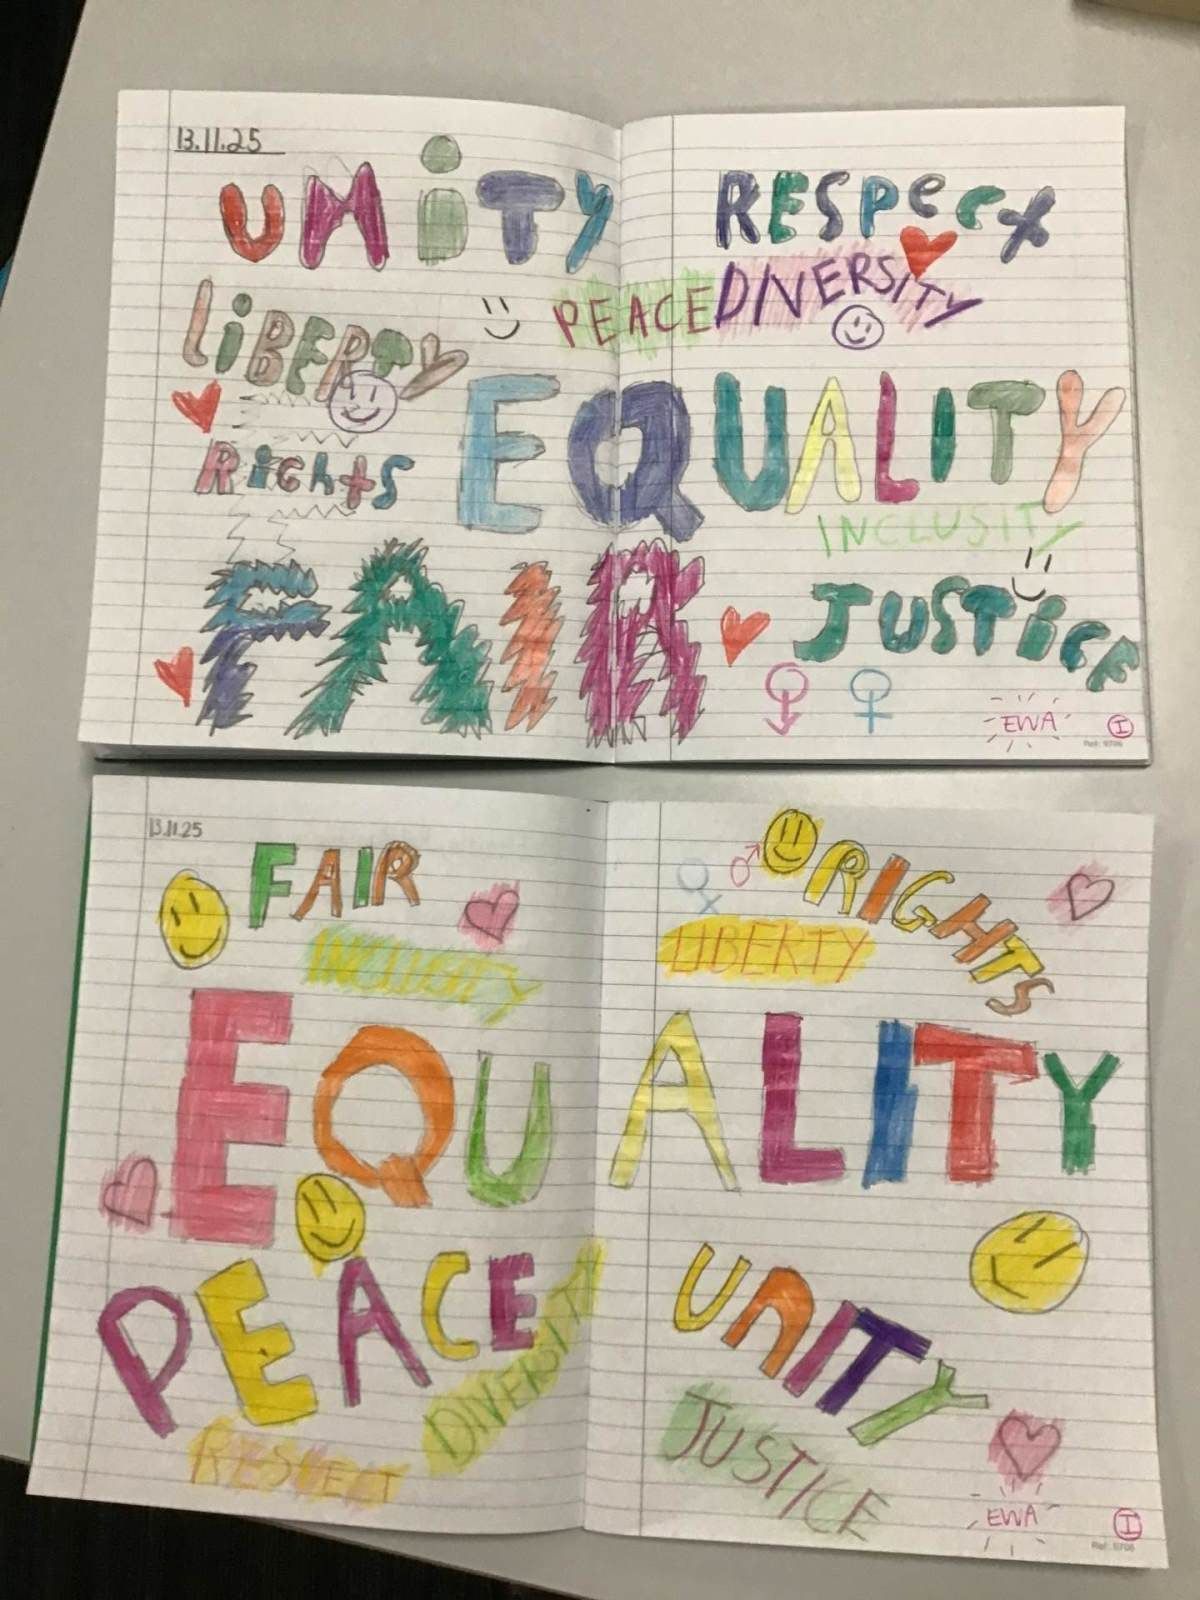 13.11.25
UNiTY
RESPecT
LiBERTY
PEACE
DIVERSITY
EQUALITY
RigHtS
INCLUSITY
FAIR
JUSTiCE
EWA
I
Ref: 9706
13.11.25
FAIR
RIGHTS
INCLUSITY
LIBERTY
EQUALITY
PEACE
UNITY
DIVERSITY
RESPECT
JUSTICE
EWA
I
Ref: 9706